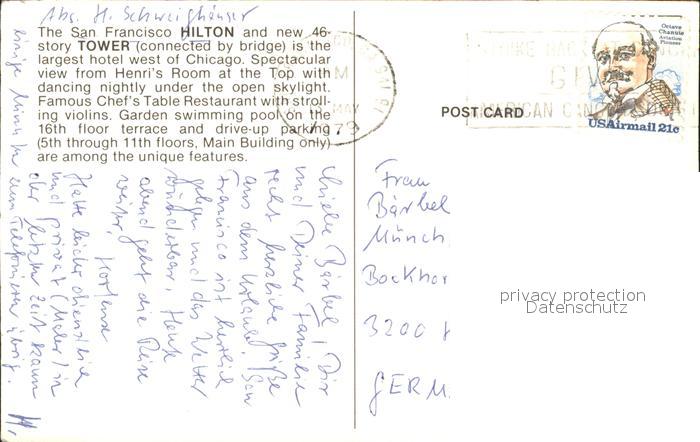 Abs. H. Schweighäuser
The San Francisco HILTON and new 46-
story TOWER (connected by bridge) is the
largest hotel west of Chicago. Spectacular
view from Henri's Room at the Top with
dancing nightly under the open skylight.
Famous Chef's Table Restaurant with stroll-
ing violins. Garden swimming pool on the
16th floor terrace and drive-up parking
(5th through 11th floors, Main Building only)
are among the unique features.
Liebe Bärbel! Dir
und Deiner Familie
recht herzliche Grüße
aus dem Urlaub. San
Francisco ist herrlich
gelegen und das Wetter
wunderbar. Heute
abend geht die Reise
weiter.
Hatte leider dienstlich
und privat (Maler) in
der letzten Zeit kaum
einige Minuten
zum Telefonieren übrig.
H.
POST CARD
MAY
1979
Octave
Chanute
Aviation
Pioneer
USAirmail 21c
STRIKE BACK
GIVE
AMERICAN CANCER
Frau
Bärbel
Münch
Bockhor
3200
GERM
privacy protection
Datenschutz